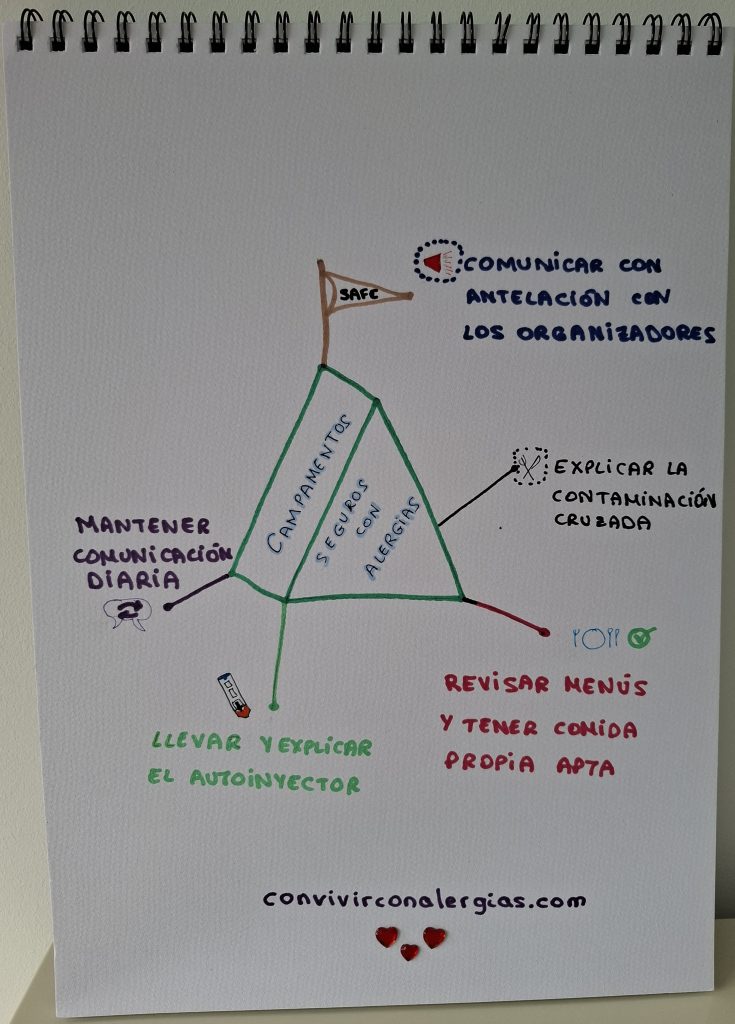 SAFC
COMUNICAR CON
ANTELACIÓN CON
LOS ORGANIZADORES
CAMPAMENTOS
SEGUROS
CON
ALERGIAS
EXPLICAR LA
CONTAMINACIÓN
CRUZADA
MANTENER
COMUNICACIÓN
DIARIA
REVISAR MENÚS
Y TENER COMIDA
PROPIA APTA
LLEVAR Y EXPLICAR
EL AUTOINYECTOR
convivirconalergias.com